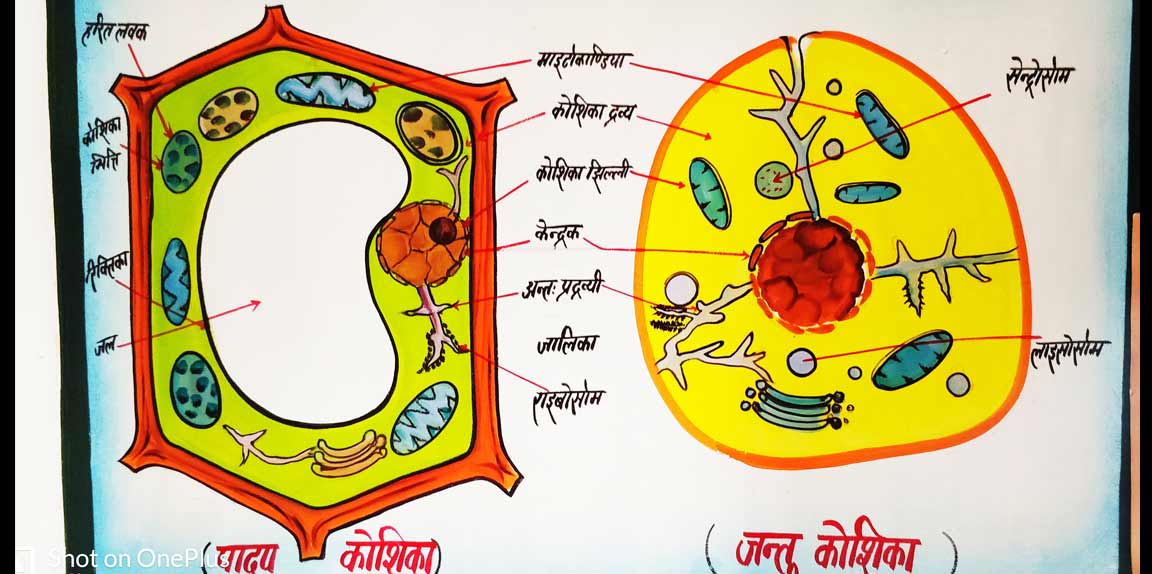 हरित लवक
कोशिका
भित्ति
रिक्तिका
जल
माइटोकाण्ड्रिया
कोशिका द्रव्य
कोशिका झिल्ली
केन्द्रक
अन्तः प्रद्रव्यी
जालिका
राइबोसोम
सेन्ट्रोसोम
लाइसोसोम
(पादप कोशिका)
(जन्तु कोशिका)
Shot on OnePlus